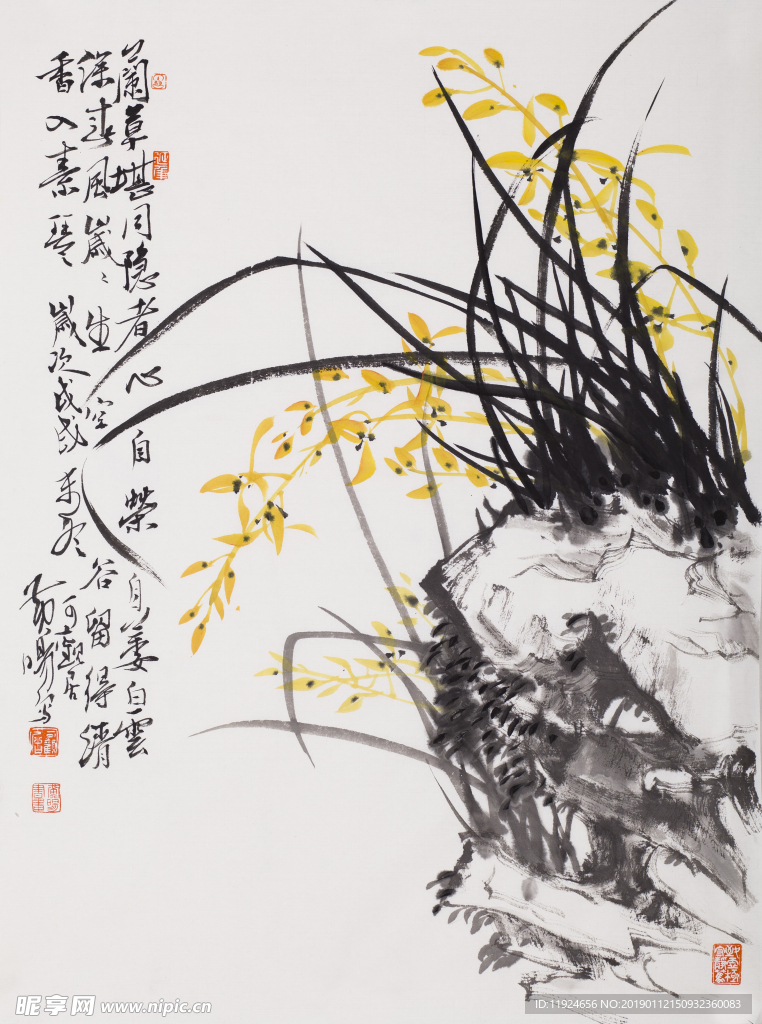 蘭草堪同隐者心自榮自萎白雲
深春風歲々生空谷留得清
香入素琴 歲次戊戌
可觀居
寫
昵享网 www.nipic.cn
ID:11924656 NO:20190112150932360083